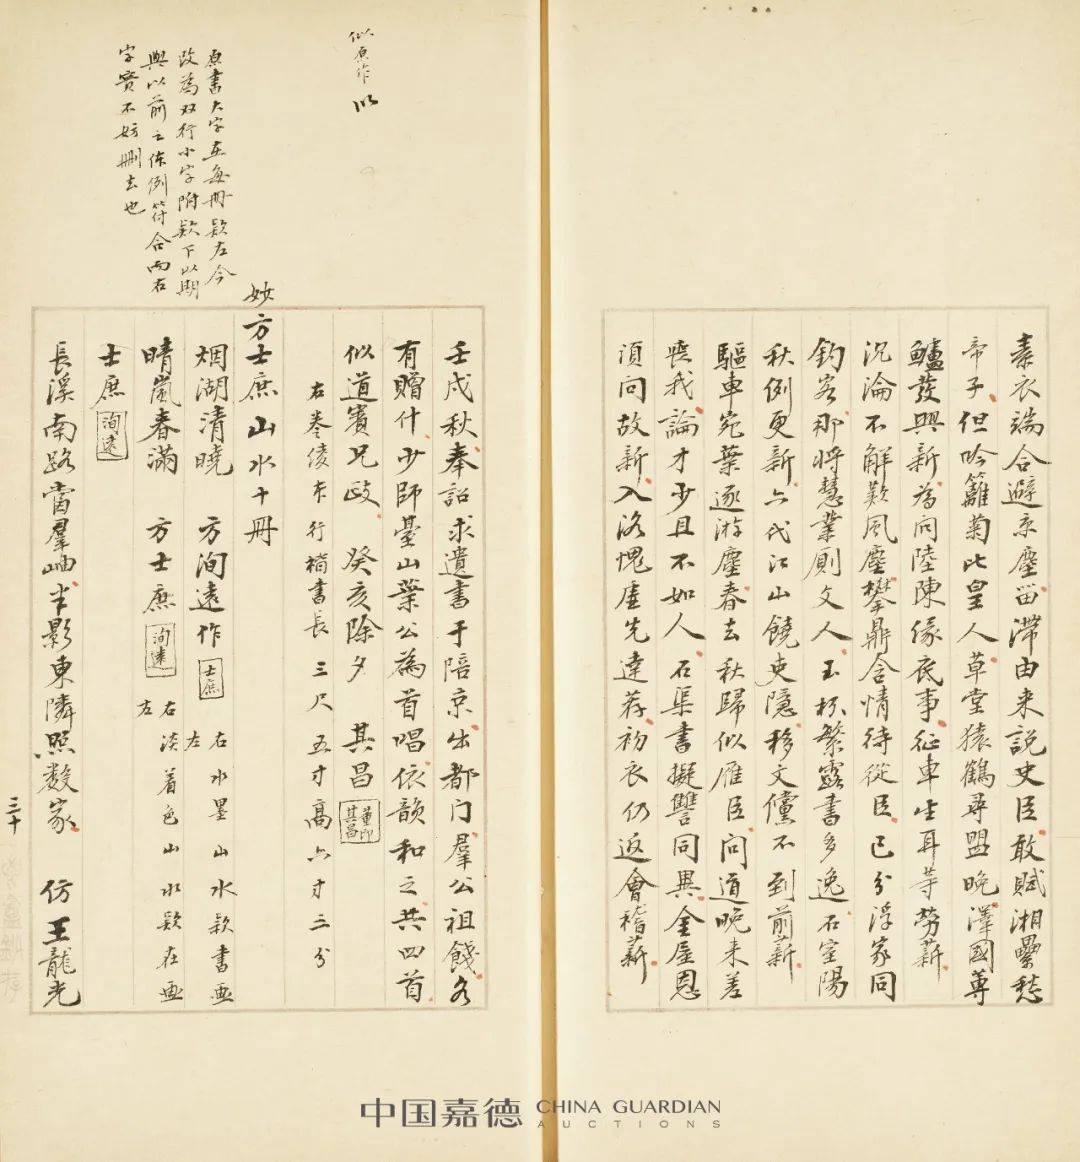 素衣端合避京塵留滯由來説史臣敢賦湘纍愁
帝子但吟籬菊比皇人草堂猿鶴尋盟晚澤國蓴
鱸發興新為向陸陳緣底事征車生耳等勞薪
沉淪不解歎風塵攀鼎含情待從臣已分浮家同
釣客那將慧業廁文人玉杯繁露書多逸石室陽
秋例更新六代江山饒吏隱移文儻不到前薪
驅車宛葉逐游塵春去秋歸似雁臣問道晚来差
喪我論才少且不如人石渠書擬讐同異金屋恩
須向故新入洛愧廑先達荐初衣仍返會稽薪
似原作以
壬戌秋奉詔求遺書于陪京出都门羣公祖餞各
有贈什少師臺山葉公為首唱依韻和之共四首
似道賓兄政 癸亥除夕 其昌 董其昌印
右卷綾本行楷書長三尺五寸高六寸三分
原書大字在每冊欵左今
改為双行小字附欵下以期
與以前之体例符合而右
字實不妨刪去也
妙 方士庶山水十冊
烟湖清曉 方洵遠作 士庶 右水墨山水欵書画
左
晴嵐春滿 方士庶 洵遠 右淡着色山水欵在画
左
士庶 洵遠
長溪南路當羣岫半影東隣照数家 仿王龍光
三十
中国嘉德 CHINA GUARDIAN
AUCTIONS